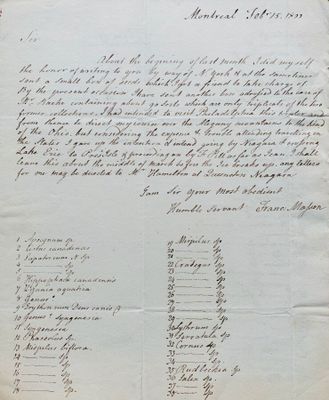 Montreal Feb. 15. 1800
Sir
About the begining of last Month I did myself
the honor of writing to you by way of N. York & at the same time
sent a small box of seeds which I got a friend to take charge of.
By the present occasion I have sent another box adressed to the care of
Mr. Nache containing about 90 sorts which are only duplicate of the two
former collections. I had intended to visit Philadelphia this winter and
from thence to direct my course over the Allegany mountains to the falls
of the Ohio. but considering the expence & trouble attending traveling in
the States I gave up the intention & intend going by Niagara & crossing
Lake Erie to
leave this about the middle of march before the ice breaks up, any letters
for me may be directed to Mr Hamilton at Queenston Niagara
I am Sir your most obedient
Humble Servant Franc. Masson
1 Apocynum sp.
2 Cistus canadensis
3 Eupatorium N. Sp
4 ——— Sp
5 ——— Sp
6 Hippophae canadensis
7 Zizania aquatica
8 Genus?
9 Erythronium Dens canis?
10 Genus? Syngenesia
11 Syngenesia
12 Phaseolus sp.
13 Mespilus biflora
14 ——— Sp
15 ——— Sp
16 ——— Sp
17 ——— Sp
18 ——— Sp
19 Mespilus sp
20 ——— Sp
21 ——— Sp
22 Crategus Sp
23 ——— Sp
24 ——— Sp
25 ——— Sp
26 ——— Sp
27 ——— Sp
28 ——— Sp
29 ——— Sp
30 Lythrum Sp
31 Serratula Sp
32 Cornus Sp
33 ——— Sp
34 ——— Sp
35 Rudbeckea Sp
36 Salix Sp.
37 ——— Sp
38 ——— Sp